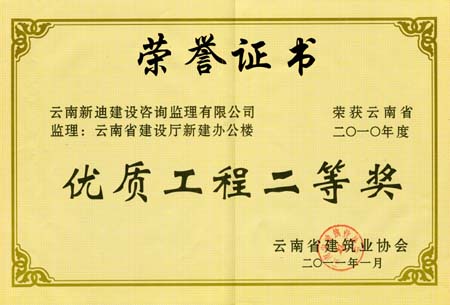 荣誉证书
云南新迪建设咨询监理有限公司 荣获云南省
监理：云南省建设厅新建办公楼 二〇一〇年度
优质工程二等奖
云南省建筑业协会
二〇一一年一月